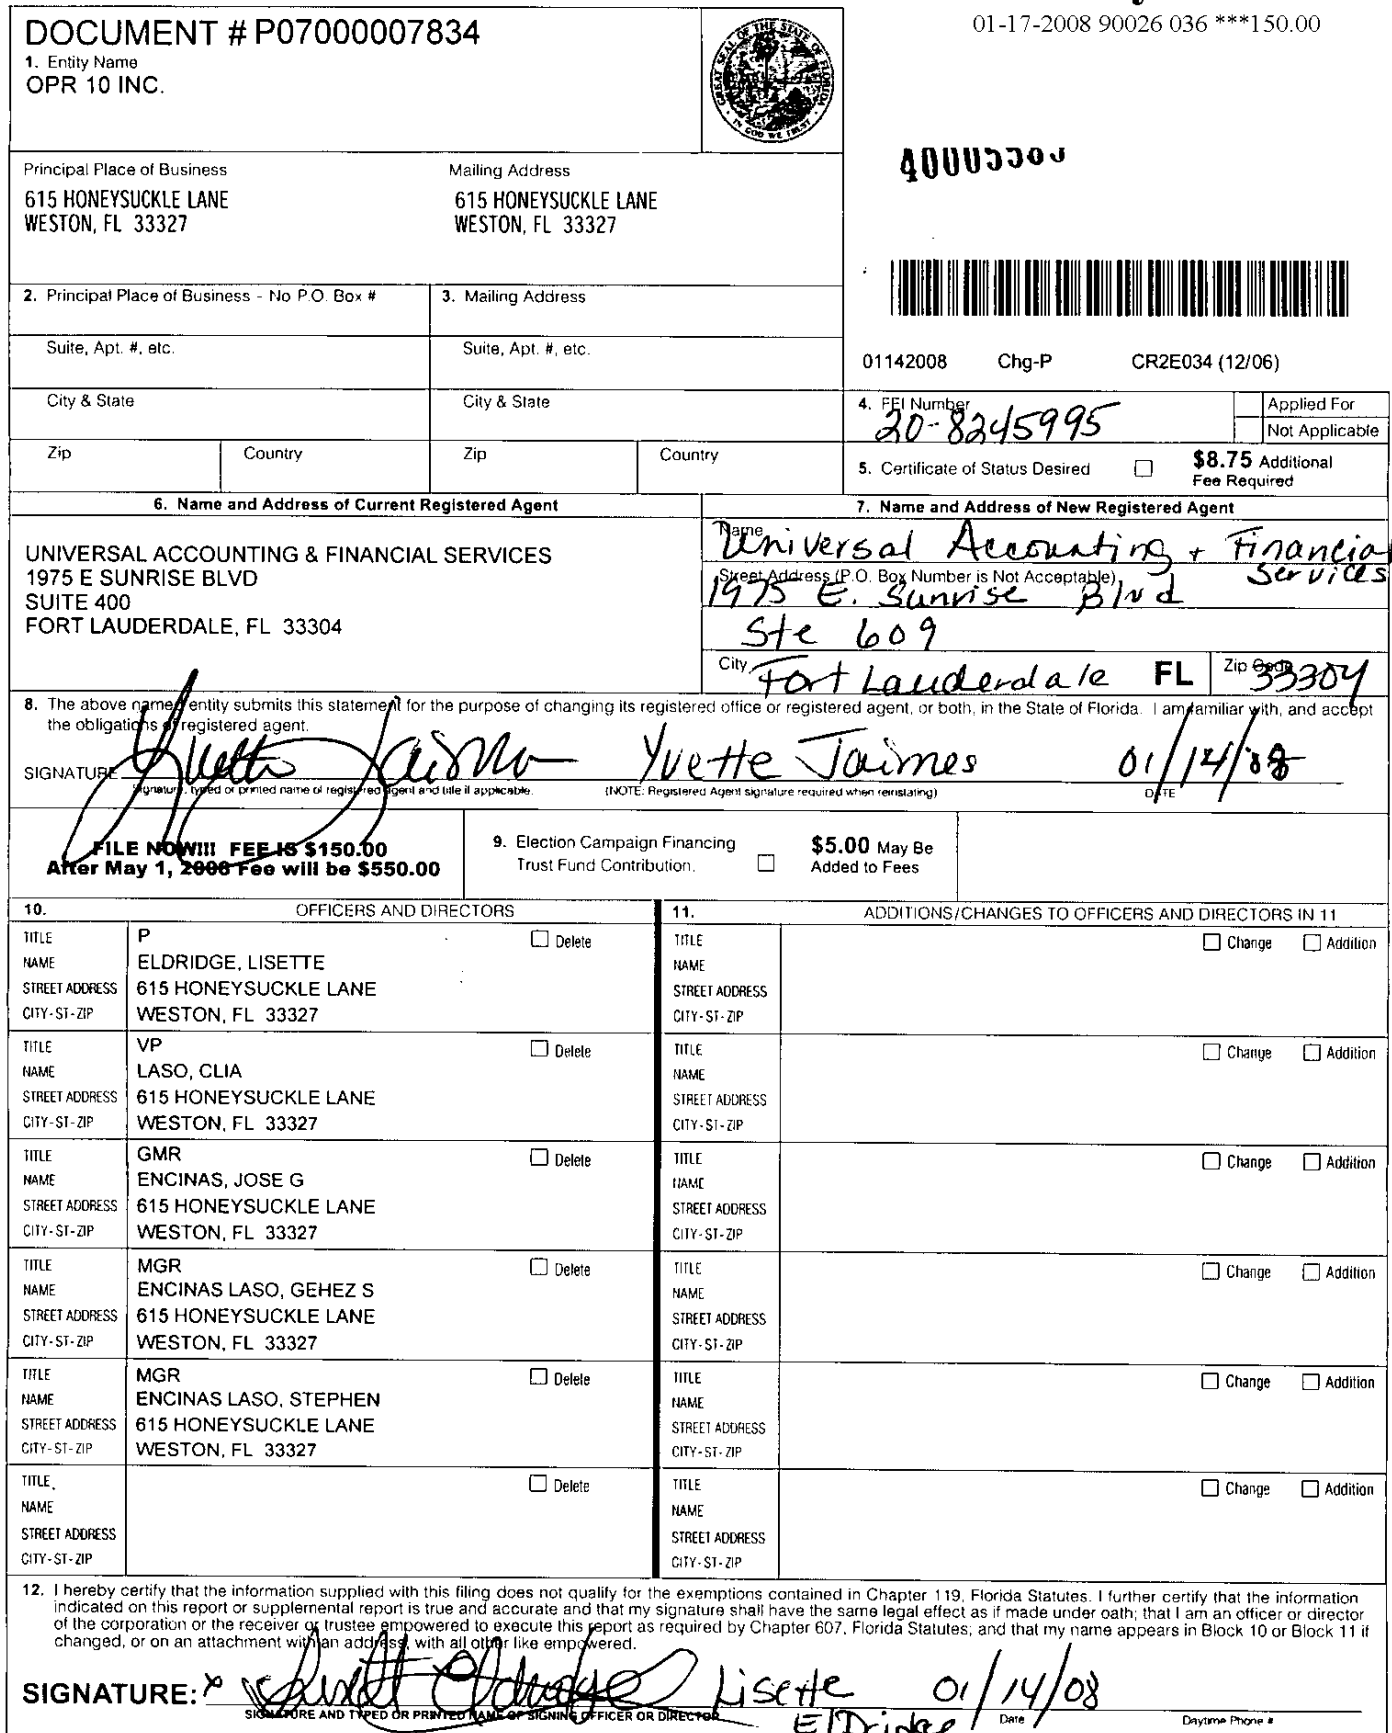 01-17-2008 90026 036 ***150.00
DOCUMENT # P07000007834
1. Entity Name
OPR 10 INC.
GREAT SEAL OF THE STATE OF FLORIDA
IN GOD WE TRUST
Principal Place of Business
615 HONEYSUCKLE LANE
WESTON, FL 33327
Mailing Address
615 HONEYSUCKLE LANE
WESTON, FL 33327
2. Principal Place of Business - No P.O. Box #
3. Mailing Address
Suite, Apt. #, etc.
Suite, Apt. #, etc.
City & State
City & State
Zip
Country
Zip
Country
01142008 Chg-P CR2E034 (12/06)
4. FEI Number
20-8245995
Applied For
Not Applicable
5. Certificate of Status Desired
$8.75 Additional
Fee Required
6. Name and Address of Current Registered Agent
UNIVERSAL ACCOUNTING & FINANCIAL SERVICES
1975 E SUNRISE BLVD
SUITE 400
FORT LAUDERDALE, FL 33304
7. Name and Address of New Registered Agent
Name
Universal Accounting + Financial
Services
Street Address (P.O. Box Number is Not Acceptable)
1975 E. Sunrise Blvd
Ste 609
City
Fort Lauderdale
FL
Zip Code
33304
8. The above named entity submits this statement for the purpose of changing its registered office or registered agent, or both, in the State of Florida. I am familiar with, and accept
the obligations of registered agent.
SIGNATURE Yvette Jaimes Yvette Jaimes 01/14/08
Signature, typed or printed name of registered agent and title if applicable.
(NOTE: Registered Agent signature required when reinstating)
DATE
FILE NOW!!! FEE IS $150.00
After May 1, 2008 Fee will be $550.00
9. Election Campaign Financing
Trust Fund Contribution.
$5.00 May Be
Added to Fees
10. OFFICERS AND DIRECTORS
TITLE P Delete
NAME ELDRIDGE, LISETTE
STREET ADDRESS 615 HONEYSUCKLE LANE
CITY-ST-ZIP WESTON, FL 33327
TITLE VP Delete
NAME LASO, CLIA
STREET ADDRESS 615 HONEYSUCKLE LANE
CITY-ST-ZIP WESTON, FL 33327
TITLE GMR Delete
NAME ENCINAS, JOSE G
STREET ADDRESS 615 HONEYSUCKLE LANE
CITY-ST-ZIP WESTON, FL 33327
TITLE MGR Delete
NAME ENCINAS LASO, GEHEZ S
STREET ADDRESS 615 HONEYSUCKLE LANE
CITY-ST-ZIP WESTON, FL 33327
TITLE MGR Delete
NAME ENCINAS LASO, STEPHEN
STREET ADDRESS 615 HONEYSUCKLE LANE
CITY-ST-ZIP WESTON, FL 33327
TITLE Delete
NAME
STREET ADDRESS
CITY-ST-ZIP
11. ADDITIONS/CHANGES TO OFFICERS AND DIRECTORS IN 11
TITLE Change Addition
NAME
STREET ADDRESS
CITY-ST-ZIP
TITLE Change Addition
NAME
STREET ADDRESS
CITY-ST-ZIP
TITLE Change Addition
NAME
STREET ADDRESS
CITY-ST-ZIP
TITLE Change Addition
NAME
STREET ADDRESS
CITY-ST-ZIP
TITLE Change Addition
NAME
STREET ADDRESS
CITY-ST-ZIP
TITLE Change Addition
NAME
STREET ADDRESS
CITY-ST-ZIP
12. I hereby certify that the information supplied with this filing does not qualify for the exemptions contained in Chapter 119, Florida Statutes. I further certify that the information
indicated on this report or supplemental report is true and accurate and that my signature shall have the same legal effect as if made under oath; that I am an officer or director
of the corporation or the receiver or trustee empowered to execute this report as required by Chapter 607, Florida Statutes; and that my name appears in Block 10 or Block 11 if
changed, or on an attachment with an address, with all other like empowered.
SIGNATURE: x Lisette Eldridge Lisette 01/14/08
ElDridge
SIGNATURE AND TYPED OR PRINTED NAME OF SIGNING OFFICER OR DIRECTOR
Date
Daytime Phone #